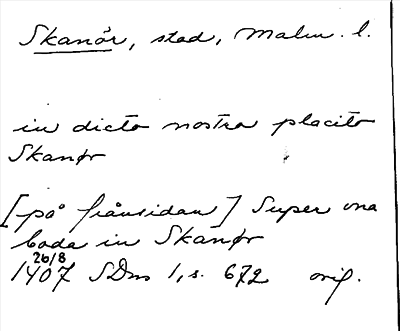 Skanör, stad, Malm. l.
in dicto nostro placito
Skanør
[på frånsidan] Super una
boda in Skanør
26/8
1407 SDns 1, s. 672 orig.